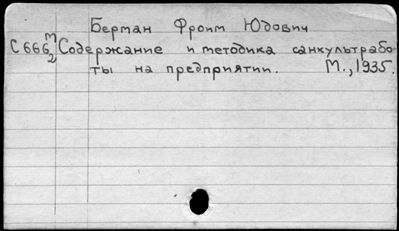 Берман Фроим Юдович
С 666 м/2 Содержание и методика санкультрабо-
ты на предприятии. М., 1935.